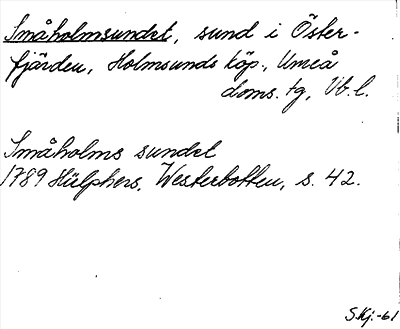 Småholmsundet, sund i Öster-
fjärden, Holmsunds köp., Umeå
doms. tg, Vb. l.
Småholms sundet
1789 Hülphers, Westerbotten, s. 42.
S.Kj.-61